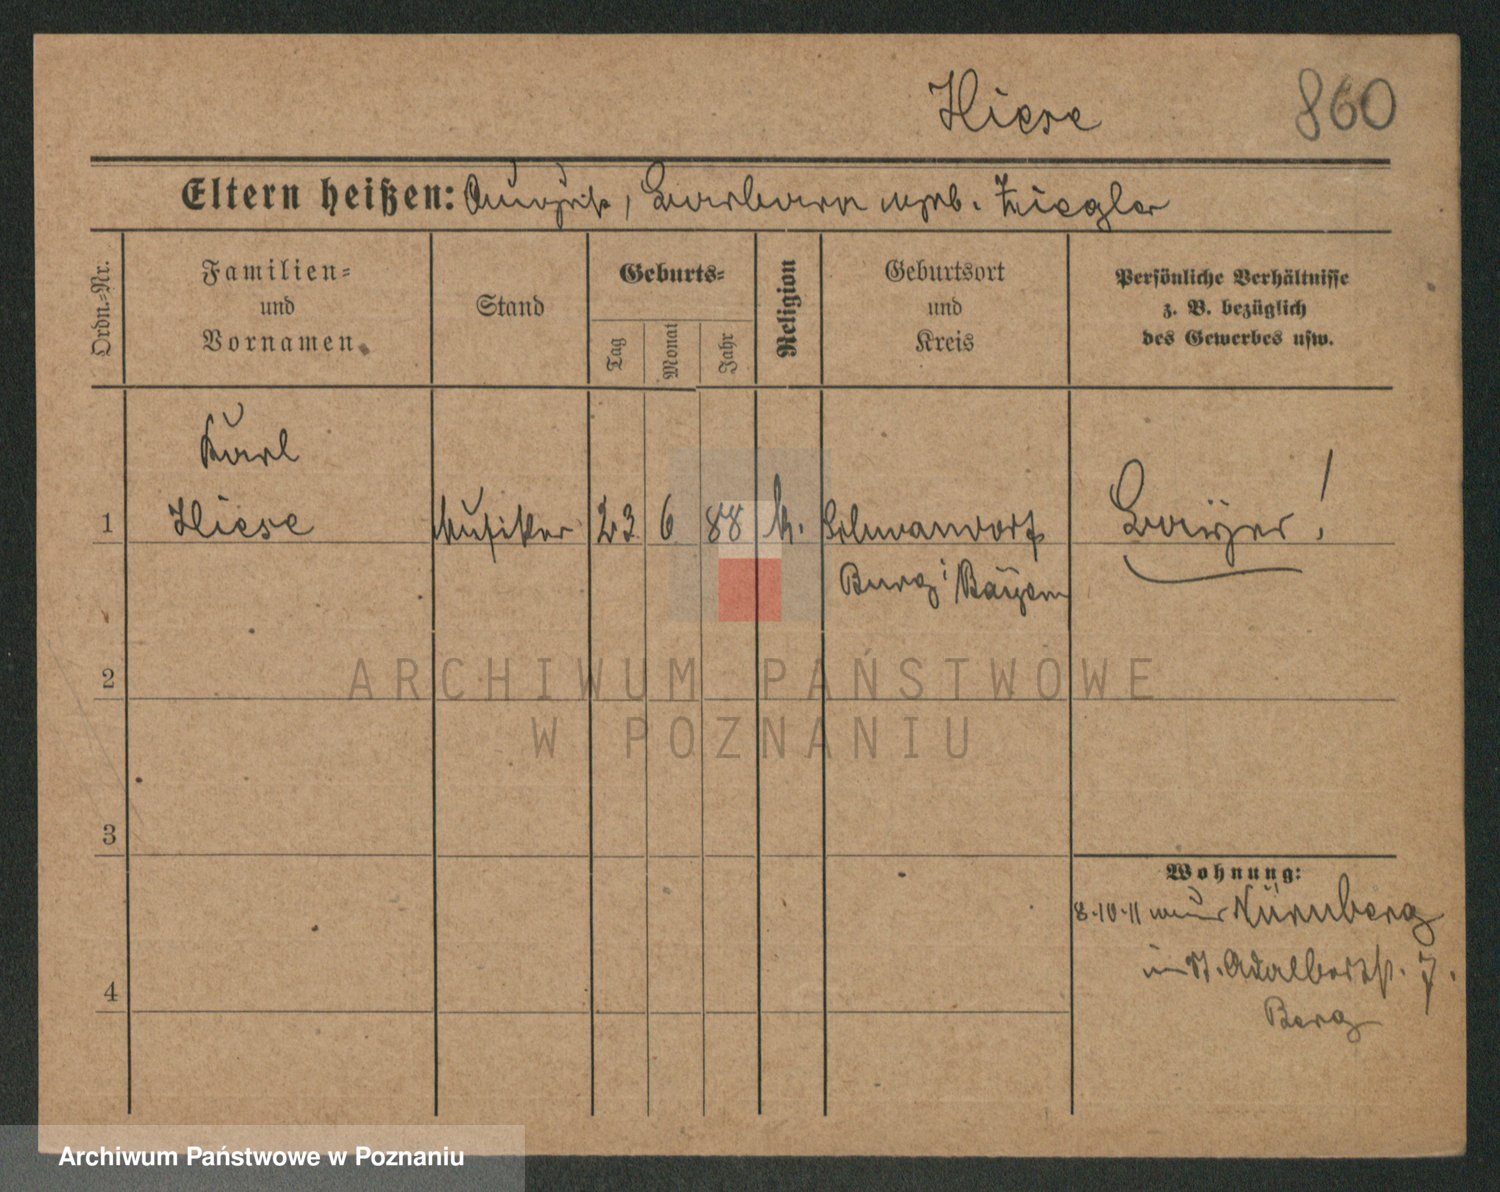 Hiese 860
Eltern heißen: August, Barbara geb. Ziegler
Ordn.-Nr.
Familien-
und
Vornamen
Stand
Geburts-
Tag
Monat
Jahr
Religion
Geburtsort
und
Kreis
Persönliche Verhältnisse
z. B. bezüglich
des Gewerbes usw.
Karl
1 Hiese Musiker 23 6 88 k. Schwandorf Bayer!
Burg i/Bayern
2
ARCHIWUM PAŃSTWOWE
W POZNANIU
3
Wohnung:
8.10.11 Nürnberg
in St. Adalbertst. 7.
Berg
4
Archiwum Państwowe w Poznaniu